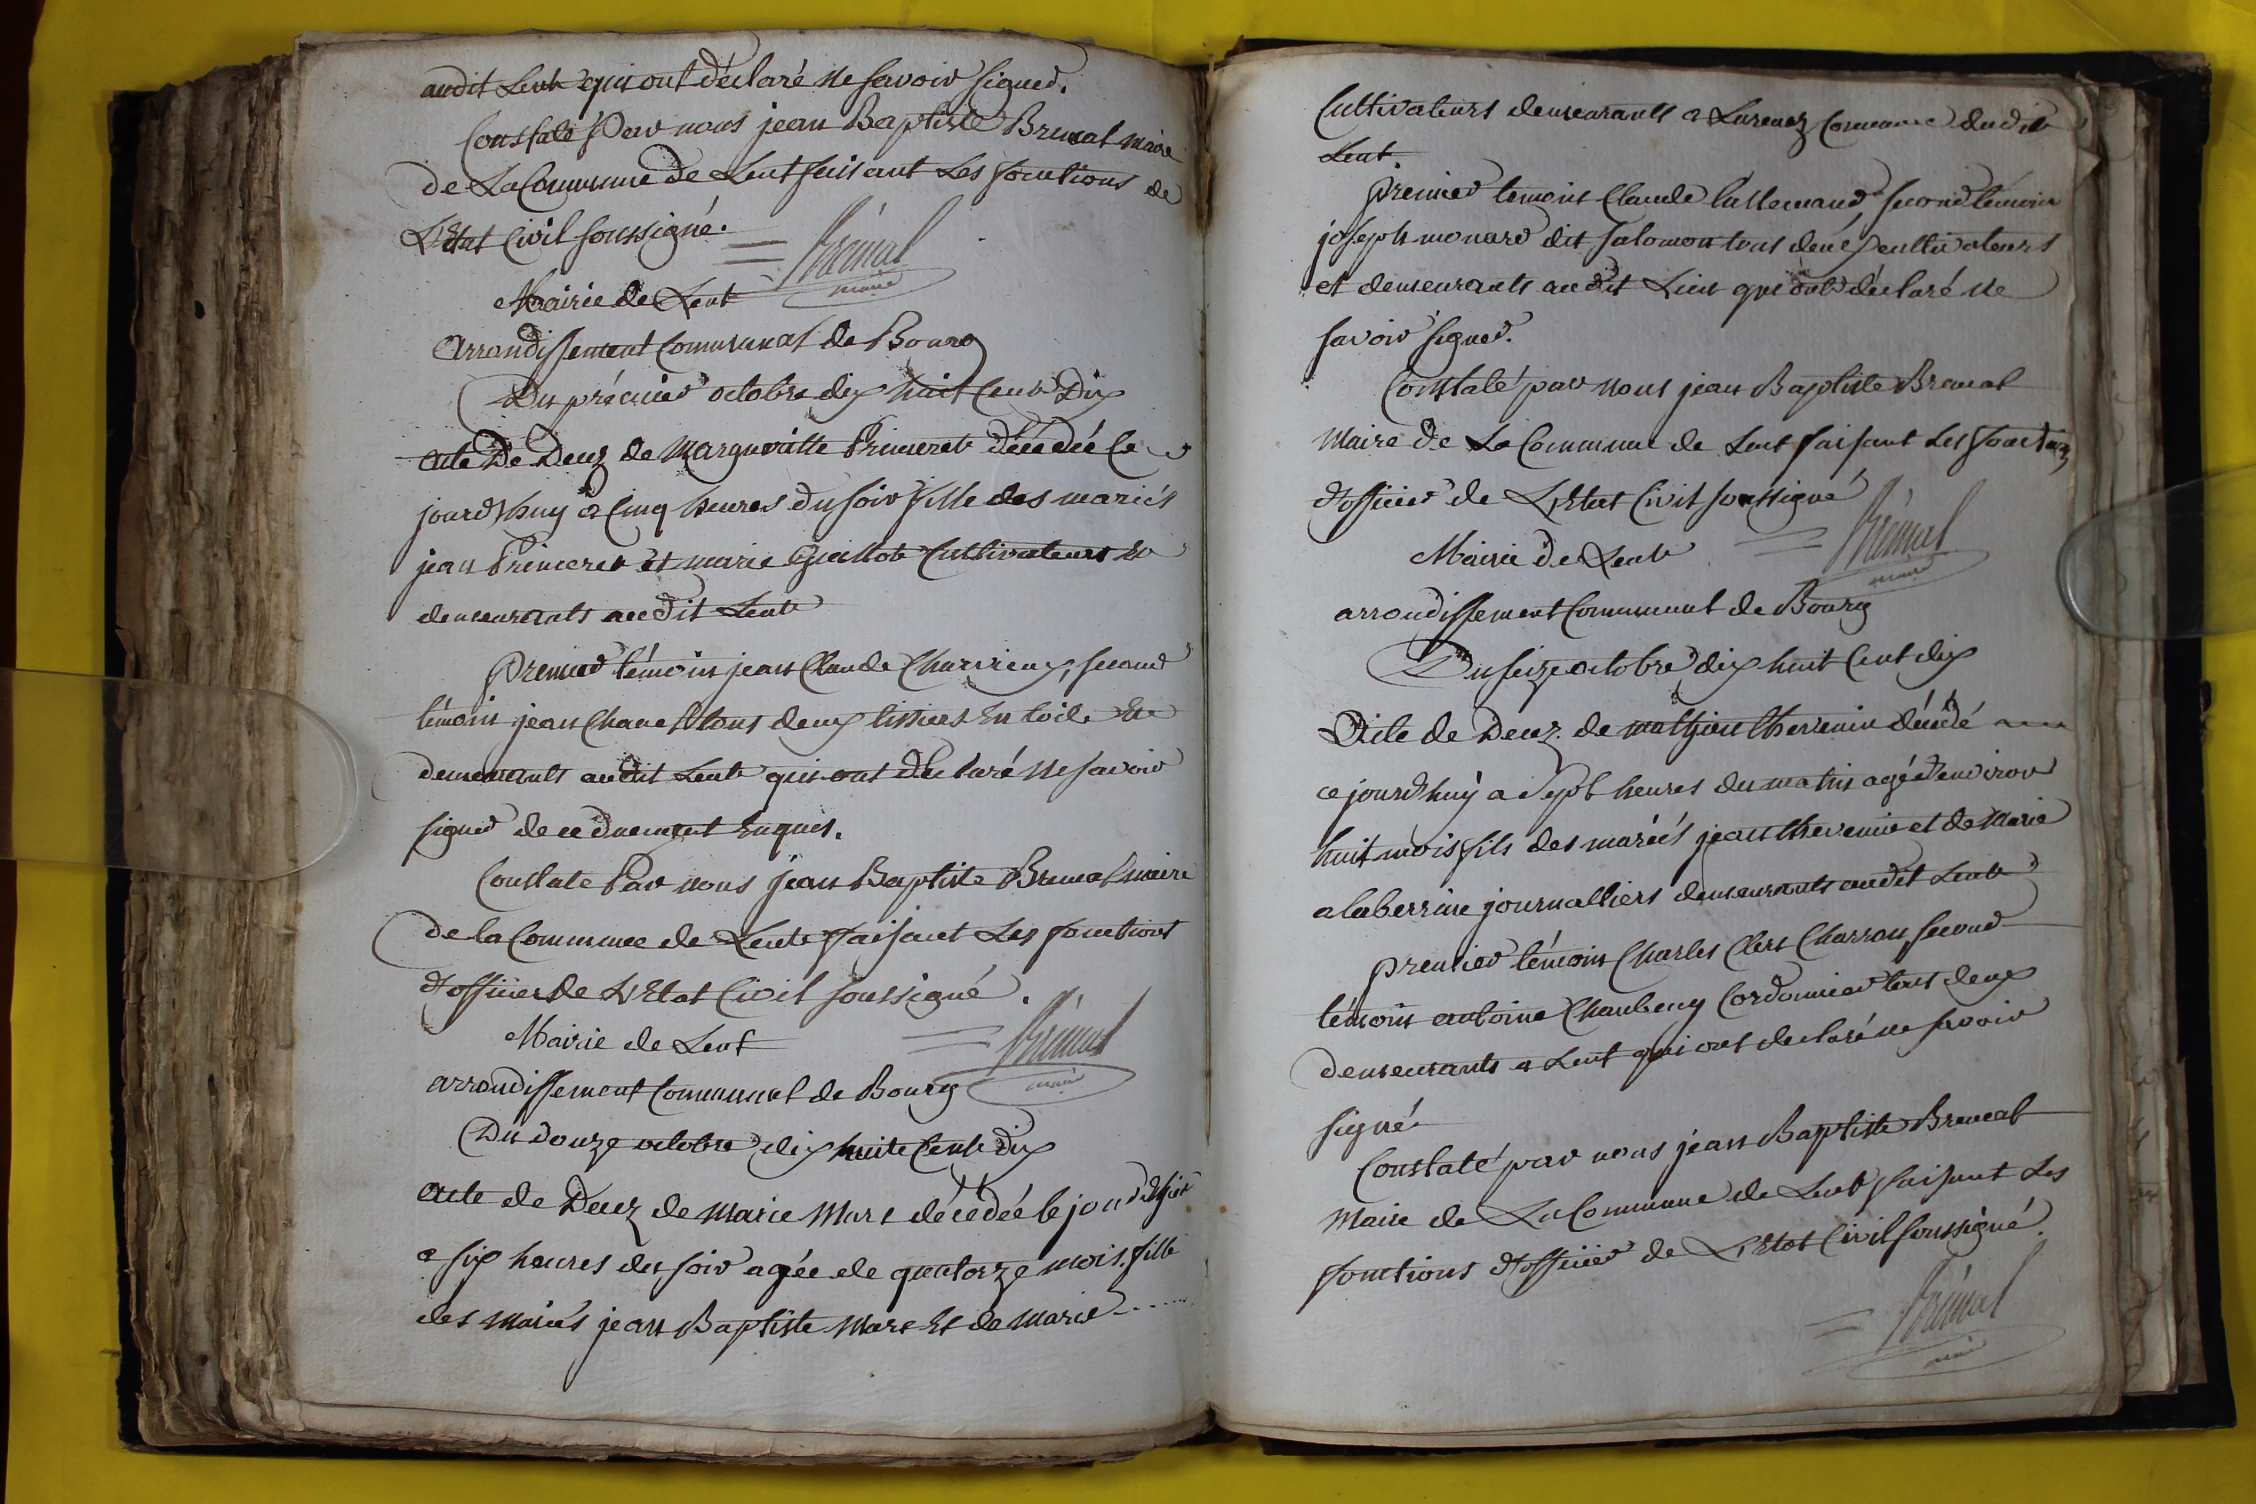 audit Lent qui ont déclaré ne savoir signer.
Constaté Par nous jean Baptiste Brunal maire
de La Commune de Lent faisant Les fonctions de
L'Etat Civil soussigné.
Brunal
maire
Mairie de Lent
Arrondissement Communal de Bourg
Du prémier octobre dix huit Cent Dix
acte De Deces de Margueritte Princeret décédée Ce
jourd'huy a Cinq heures du soir fille des mariés
jean Princeret et marie Guillot Cultivateurs et
demeurants audit Lent
Premier témoin jean Claude Charvieux, second
témoin jean Chanel tous deux tissiers En toile et
demeurants audit Lent qui ont déclaré ne savoir
signer de ce duement Enquis.
Constate Par nous jean Baptiste Brunal maire
de la Commune de Lent faisant Les fonctions
d'officier de L'Etat Civil soussigné.
Brunal
maire
Mairie de Lent
arrondissement Communal de Bourg
Du douze octobre dix huit Cent dix
acte de Decez de Marie Marc décédée le jour d'hier
a six heures du soir agée de quatorze mois fille
des mariés jean Baptiste Marc Et de Marie
Cultivateurs demeurants a Commune dudit
Lent
Premier temoin Claude Lallemand second témoin
joseph monard dit Salomon tous deux cultivateurs
et demeurants audit Lieu qui ont déclaré ne
savoir signer.
Constaté par nous jean Baptiste Brunal
Maire de La Commune de Lent faisant Les fonctions
d'officier de L'Etat Civil soussigné
Brunal
maire
Mairie de Lent
arrondissement Communal de Bourg
Du seize octobre dix huit Cent dix
Acte de Decez de mathieu thevenin décédé
ce jourd'huy a Sept heures du matin agé d'environ
huit mois fils des mariés jean thevenin et de Marie
journalliers demeurants audit Lent
Premier témoin Charles Clerc Charron second
témoin antoine Chanbeny Cordonnier tous deux
demeurants a Lent qui ont declaré ne savoir
signé.
Constaté par nous jean Baptiste Brunal
Maire de La Commune de Lent faisant Les
fonctions d'officier de L'Etat Civil soussigné.
Brunal
maire